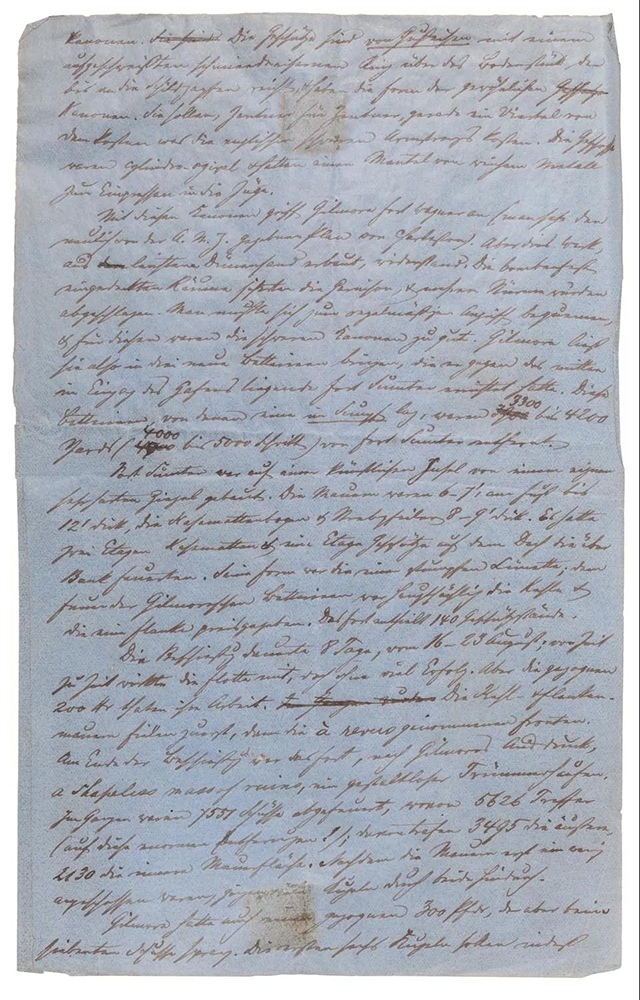 Kanonen. Die Geschütze sind von Gußeisen mit einem
aufgeschweißten schmiedeeisernen Ring über das Bodenstück, der
bis an die Schildzapfen reicht, haben die Form der gewöhnlichen
Kanonen. Sie sollen, Zentner für Zentner, gerade ein Viertel von
dem kosten was die englischen Armstrongs kosten. Die Geschosse
waren cylindro-ogival & hatten einen Mantel von weichem Metall
zum Einpressen in die Züge.
Mit diesen Kanonen griff Gilmore Fort Wagner an (man sehe den
neulich von der A. M. Z. gegebenen Plan von Charleston). Aber dies Werk
aus Dünensand erbaut, widerstand. Die bombenfest
eingedeckten Räume schützten die Garnison, & mehrere Stürme wurden
abgeschlagen. Man mußte sich zum regelmäßigen Angriff bequemen,
& für diesen waren die schweren Kanonen zu gut. Gilmore ließ
sie also in drei neue Batterien bringen, die er gegen das mitten
im Eingang des Hafens liegende Fort Sumter errichtet hatte. Diese
Batterien, von denen eine im Sumpf lag, waren 3300 bis 4200
Yards (4000 bis 5000 Schritt) von Fort Sumter entfernt.
Fort Sumter war auf einer künstlichen Insel von einem eignen
harten Ziegel gebaut. Die Mauern waren 6–7', am Fuß bis
12' dick, die Kasemattenbogen & Strebepfeiler 8–9' dick. Es hatte
zwei Etagen Kasematten & eine Etage Geschütze auf dem Dach die über
Bank feuerten. Seine Form war die einer stumpfen Lünette; dem
Feuer der Gilmoreschen Batterien war hauptsächlich die Kehle &
die eine Flanke preisgegeben. Das Fort enthielt 140 Geschützstände.
Die Beschießung dauerte 8 Tage, vom 16–23 August; von Zeit
zu Zeit wirkte die Flotte mit, doch ohne viel Erfolg. Aber die gezognen
200 thaten ihre Arbeit. Die Kehl- & Flanken-
mauern fielen zuerst, dann die à revers genommenen Fronten.
Am Ende der Beschießung war das Fort, nach Gilmores Ausdruck,
a shapeless mass of ruins, ein gestaltloser Trümmerhaufen.
Im Ganzen waren 7551 Schüsse abgefeuert, wovon 5626 Treffer
(auf diese enormen Entfernungen!); davon trafen 3495 die äußere,
2130 die innere Mauerfläche. Nachdem die Mauern erst ein wenig
angeschossen waren, gingen Kugeln durch beide hindurch.
Gilmore hatte auch gezognen 300 Pfdr, der aber beim
siebenten Schusse sprang. Die ersten sechs Kugeln sollen indeß